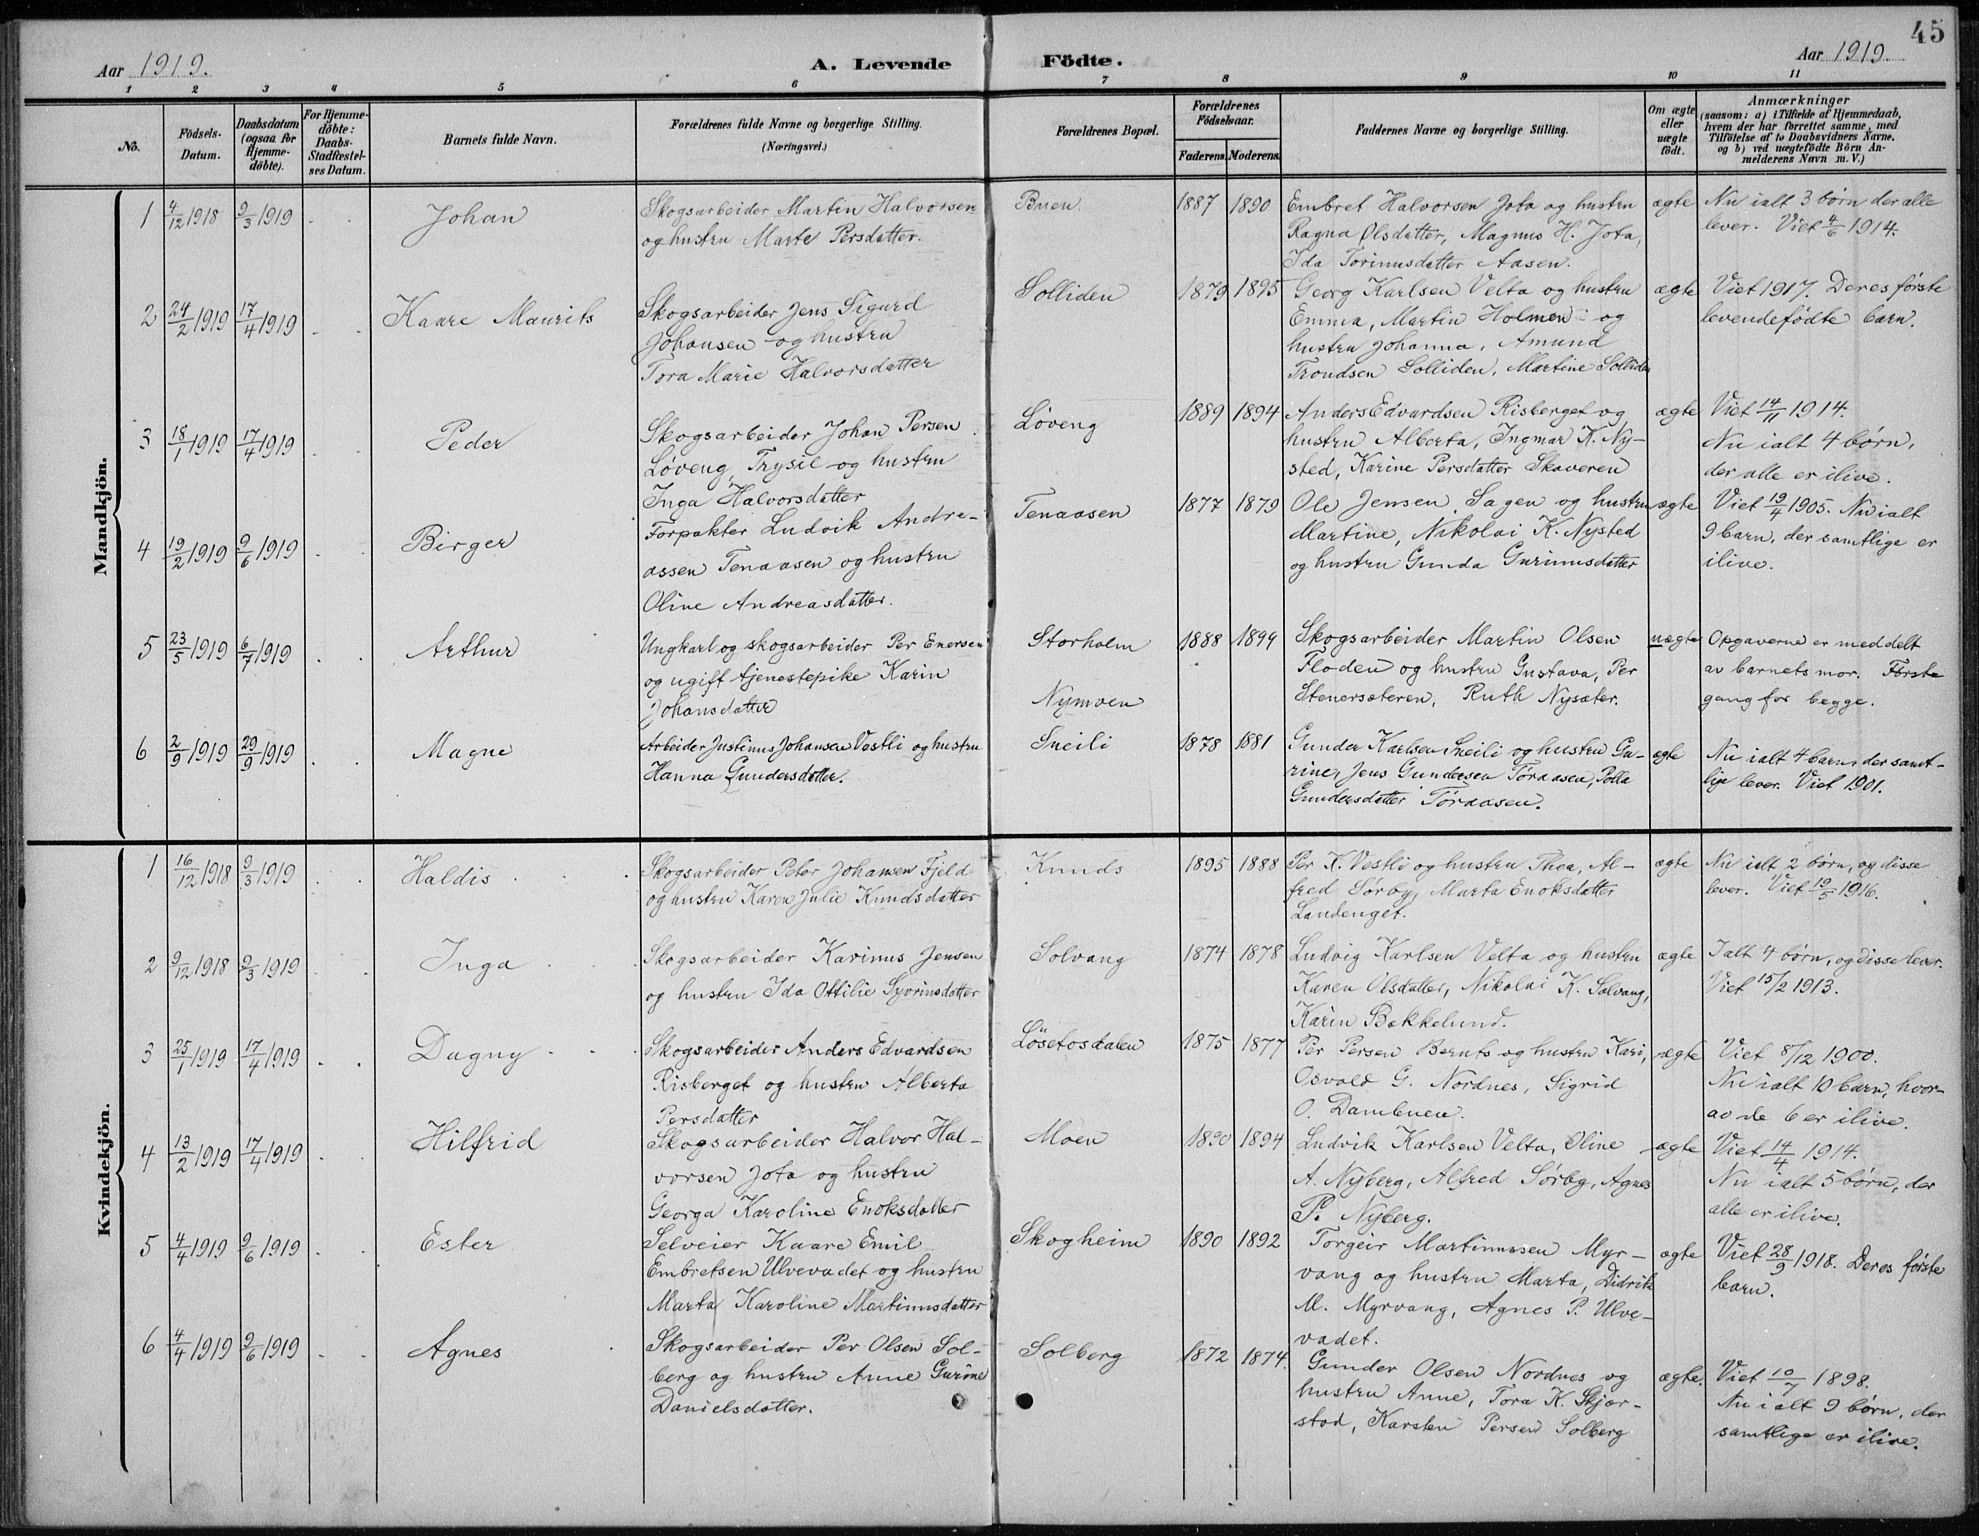 45
Aar 1919.
A. Levende Födte.
Aar 1919.
1 2 3 4 5 6 7 8 9 10 11
No.
Födsels-
Datum.
Daabsdatum
(ogsaa for
Hjemme-
döbte).
For Hjemme-
döbte:
Daabs-
Stadfæstel-
ses Datum.
Barnets fulde Navn.
Forældrenes fulde Navne og borgerlige Stilling.
(Næringsvei.)
Forældrenes Bopæl.
Forældrenes
Födselsaar.
Faderens. Moderens.
Faddernes Navne og borgerlige Stilling.
Om ægte
eller
uægte
födt.
Anmærkninger
(saasom: a) i Tilfælde af Hjemmedaab,
hvem der har forrettet samme, med
Tilföielse af to Daabsvidners Navne.
og b) ved uægtefödte Börn An-
melderens Navn m. V.)
Mandkjön.
1 4/12 1918 9/3 1919 Johan
Skogsarbeider Martin Halvorsen
og hustru Marte Persdatter.
Buen 1887 1890
Embret Halvorsen Jota og hustru
Ragna Olsdatter, Magnus H. Jota,
Ida Torinusdatter Aasen.
ægte
Nu ialt 3 børn der alle
lever. Viet 4/6 1914.
2 24/2 1919 17/4 1919 Kaare Maurits
Skogsarbeider Jens Sigurd
Johansen og hustru
Tora Marie Halvorsdatter
Solliden 1879 1895
Georg Karlsen Velta og hustru
Emma, Martin Holmen og
hustru Johanna, Amund
Trondsen Solliden, Martine Solliden
ægte
Viet 1917. Deres første
levendefødte barn.
3 18/1 1919 17/4 1919 Peder
Skogsarbeider Johan Persen
Løveng, Trysil og hustru
Inga Halvorsdatter
Løveng 1889 1894
Anders Edvardsen Risberget og
hustru Alberta, Ingmar K. Ny-
sted, Karine Persdatter Skaveren
ægte
Viet 14/11 1914.
Nu ialt 4 børn,
der alle er ilive.
4 19/2 1919 9/6 1919 Birger
Forpakter Ludvik Andre-
assen Tenaasen og hustru
Oline Andreasdatter.
Tenaasen 1877 1879
Ole Jensen Sagen og hustru
Martine, Nikolai K. Nysted
og hustru Gunda Gurinusdatter
ægte
Viet 19/4 1905. Nu ialt
9 barn, der samtlige er
ilive.
5 23/5 1919 6/7 1919 Arthur
Ungkarl og skogsarbeider Per Enersen
og ugift tjenestepike Karin
Johansdatter
Storholm
Nymoen
1888 1899
Skogsarbeider Martin Olsen
Floden og hustru Gustava, Per
Stenersæteren, Ruth Nysæter.
uægte
Opgaverne er meddelt
av barnets mor. Første
gang for begge.
6 2/9 1919 29/9 1919 Magne
Arbeider Justinus Johansen Vestli og hustru
Hanna Gundersdatter.
Sneili 1878 1881
Gunder Karlsen Sneili og hustru Gu-
rine, Jens Gundersen Töraasen, Polla
Gundersdatter Töraasen.
ægte
Nu ialt 4 barn, der samt-
lige lever. Viet 1901.
Kvindekjön.
1 16/12 1918 9/3 1919 Haldis
Skogsarbeider Peter Johansen Fjeld
og hustru Karen Julie Knudsdatter
Knuds 1895 1888
Per K. Vestli og hustru Thea, Al-
fred Sørby, Marta Enoksdatter
Landenget.
ægte
Nu ialt 2 børn, og disse
lever. Viet 19/5 1916.
2 9/12 1918 9/3 1919 Inga
Skogsarbeider Karinus Jensen
og hustru Ida Ottilie Syorinsdatter
Solvang 1874 1878
Ludvig Karlsen Velta og hustru
Karen Olsdatter, Nikolai K. Solvang,
Karin Bækkelund.
ægte
Ialt 4 børn, og disse lever.
Viet 15/2 1913.
3 25/1 1919 17/4 1919 Dagny
Skogsarbeider Anders Edvardsen
Risberget og hustru Alberta
Persdatter
Lösetosdalen 1875 1877
Per Persen Bernts og hustru Kari,
Osvald G. Nordnes, Sigrid
O. Dambuen.
ægte
Viet 8/12 1900.
Nu ialt 10 barn, hvor-
av de 6 er ilive.
4 13/2 1919 17/4 1919 Hilfrid
Skogsarbeider Halvor Hal-
vorsen Jota og hustru
Georga Karoline Enoksdatter
Moen 1890 1894
Ludvik Karlsen Velta, Oline
A. Nyberg, Alfred Sørby, Agnes
P. Nyberg.
ægte
Viet 14/4 1914.
Nu ialt 5 børn, der
alle er ilive.
5 4/4 1919 9/6 1919 Ester
Selveier Kaare Emil
Embretsen Ulvevadet og hustru
Marta Karoline Martinusdatter
Skogheim 1890 1892
Torgeir Martinussen Myr-
vang og hustru Marta, Didrik
M. Myrvang, Agnes P. Ulve-
vadet.
ægte
Viet 28/9 1918. Deres første
barn.
6 4/4 1919 9/6 1919 Agnes
Skogsarbeider Per Olsen Sol-
berg og hustru Anne Gurine
Danielsdatter.
Solberg 1872 1874.
Gunder Olsen Nordnes og
hustru Anne, Tora K. Skjær-
stad, Karsten Persen Solberg
ægte.
Viet 10/7 1898.
Nu ialt 9 børn, der
samtlige er ilive.